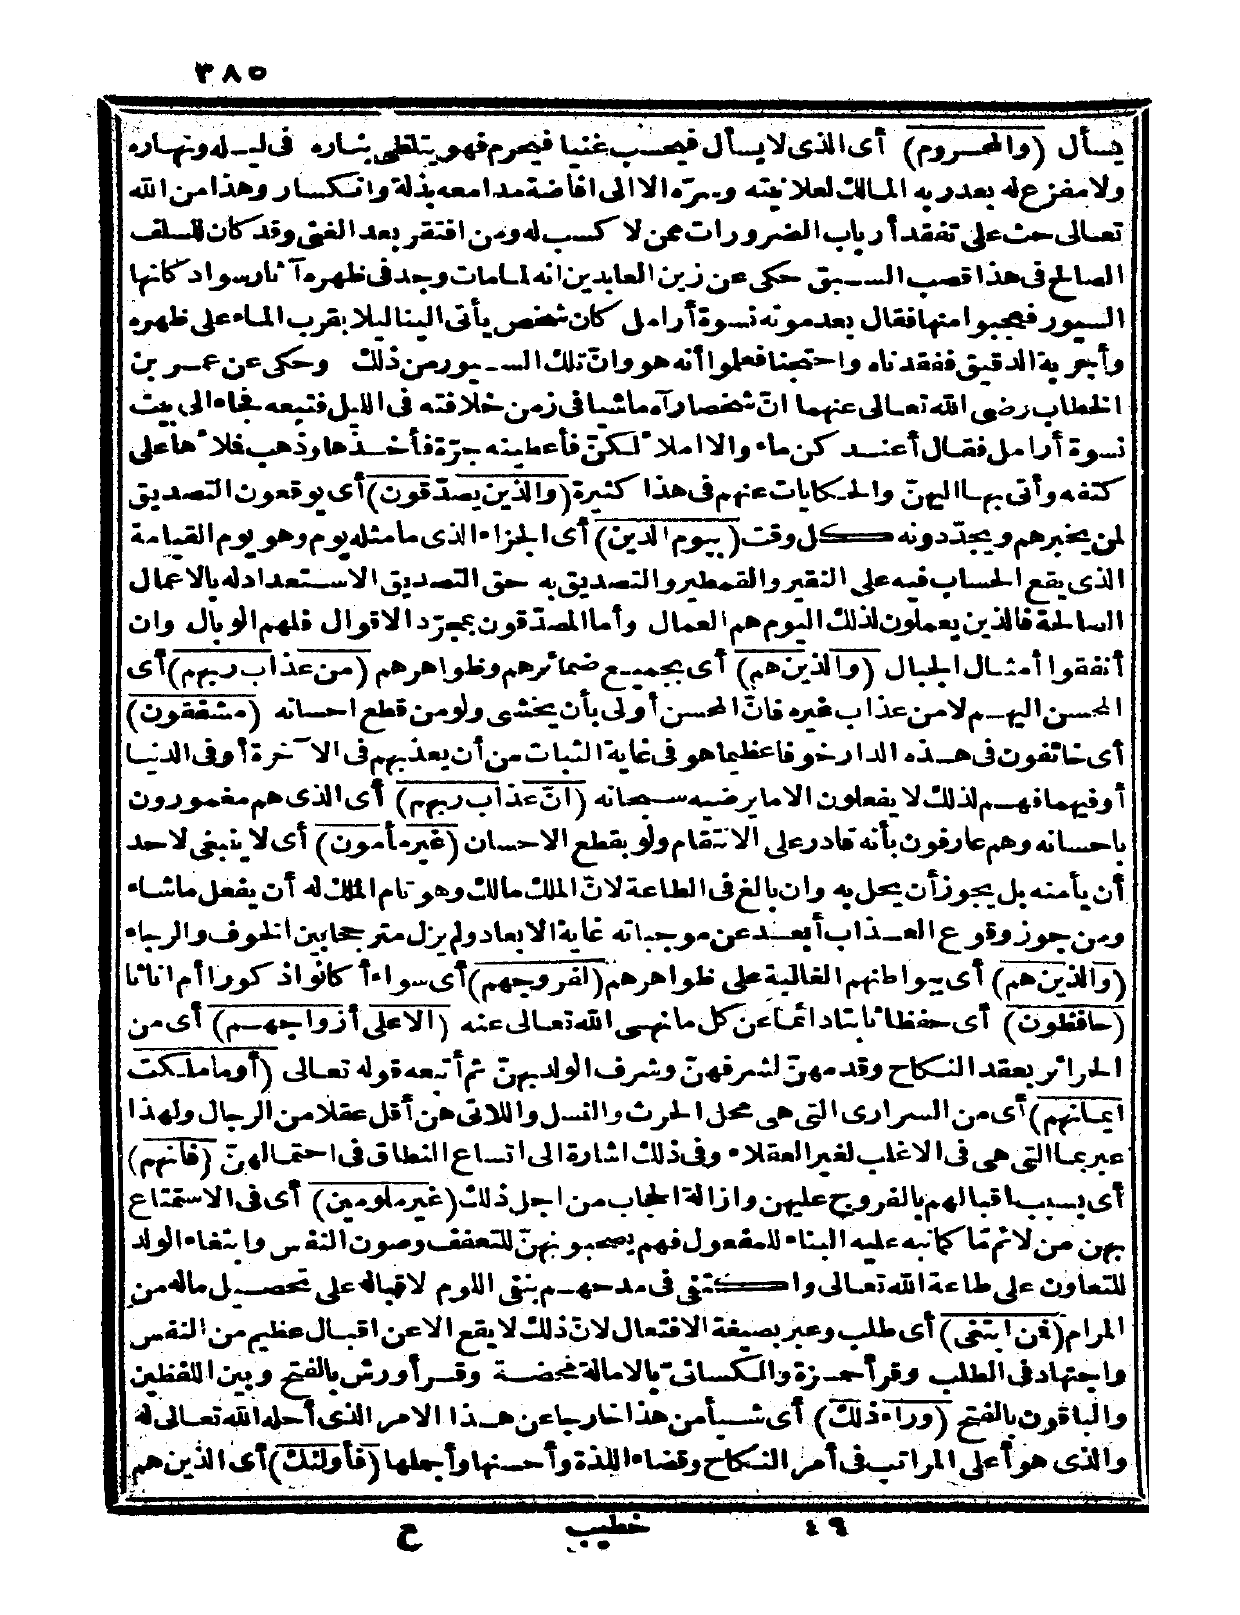 ٣٨٥
يسأل (والمحروم) أى الذى لا يسأل فيحسب غنيا فيحرم فهو يتلظى بناره فى ليله ونهاره
ولا مفزع له بعد ربه المالك لعلانيته وسرّه الا الى افاضة مدامعه بذلة وانكسار وهذا من الله
تعالى حث على تفقد أرباب الضرورات ممن لا كسب له ومن افتقر بعد الغنى وقد كان للسلف
الصالح فى هذا قصب السبق حكى عن زين العابدين انه لما مات وجد فى ظهره آثار سواد كانها
السيور فعجبوا منها فقال بعد موته نسوة أرامل كان شخص يأتى الينا ليلا بقرب الماء على ظهره
وأجربة الدقيق ففقدناه واحتجنا فعلموا أنه هو وانّ تلك السيور من ذلك وحكى عن عمر بن
الخطاب رضى الله تعالى عنهما انّ شخصا رآه ماشيا فى زمن خلافته فى الليل فتبعه فجاء الى بيت
نسوة أرامل فقال أعندكن ماء والا املأ لكنّ فأعطينه جرّة فأخذها وذهب فلأها على
كتفه وأتى بها اليهنّ والحكايات عنهم فى هذا كثيرة (والذين يصدّقون) أى يوقعون التصديق
لمن يخبرهم ويجدّدونه كل وقت (بيوم الدين) أى الجزاء الذى ما مثله يوم وهو يوم القيامة
الذى يقع الحساب فيه على النقير والقمطير والتصديق به حق التصديق الاستعداد له بالاعمال
الصالحة فالذين يعملون لذلك اليوم هم العمال وأما المصدّقون بمجرّد الاقوال فلهم الوبال وان
أنفقوا أمثال الجبال (والذين هم) أى بجميع ضمائرهم وظواهرهم (من عذاب ربهم) أى
المحسن اليهم لا من عذاب غيره فانّ المحسن أولى بأن يخشى ولو من قطع احسانه (مشفقون)
أى خائفون فى هذه الدار خوفا عظيما هو فى غاية الثبات من أن يعذبهم فى الآخرة أو فى الدنيا
أو فيهما فهم لذلك لا يفعلون الا ما يرضيه سبحانه (انّ عذاب ربهم) أى الذى هم مغمورون
باحسانه وهم عارفون بأنه قادر على الانتقام ولو بقطع الاحسان (غير مأمون) أى لا ينبغى لاحد
أن يأمنه بل يجوز أن يحل به وان بالغ فى الطاعة لانّ الملك مالك وهو تام الملك له أن يفعل ما شاء
ومن جوز وقوع العذاب أبعد عن موجباته غاية الابعاد ولم يزل مترجحا بين الخوف والرجاء
(والذين هم) أى ببواطنهم الغالبة على ظواهرهم (لفروجهم) أى سواء أكانوا ذكورا أم اناثا
(حافظون) أى حفظا ثابتا دائما عن كل ما نهى الله تعالى عنه (الا على أزواجهم) أى من
الحرائر بعقد النكاح وقدمهنّ لشرفهنّ وشرف الولد بهنّ ثم أتبعه قوله تعالى (أو ما ملكت
ايمانهم) أى من السرارى التى هى محل الحرث والنسل واللاتى هن أقل عقلا من الرجال ولهذا
عبر بما التى هى فى الاغلب لغير العقلاء وفى ذلك اشارة الى اتساع النطاق فى احتمالهنّ (فانهم)
أى بسبب اقبالهم بالفروج عليهن وازالة الحجاب من اجل ذلك (غير ملومين) أى فى الاستمتاع
بهن من لائم مّا كما نبه عليه البناء للمفعول فهم يصحبونهنّ للتعفف وصون النفس وابتغاء الولد
للتعاون على طاعة الله تعالى واكتفى فى مدحهم بنفى اللوم لاقباله على تحصيل ماله من
المرام (فمن ابتغى) أى طلب وعبر بصيغة الافتعال لانّ ذلك لا يقع الا عن اقبال عظيم من النفس
واجتهاد فى الطلب وقرأ حمزة والكسائىّ بالامالة محضة وقرأ ورش بالفتح وبين اللفظين
والباقون بالفتح (وراء ذلك) أى شيأ من هذا خارجا عن هذا الامر الذى أحله الله تعالى له
والذى هو أعلى المراتب فى أمر النكاح وقضاء اللذة وأحسنها وأجملها (فأولئك) أى الذين هم
٤٩ خطيب ح